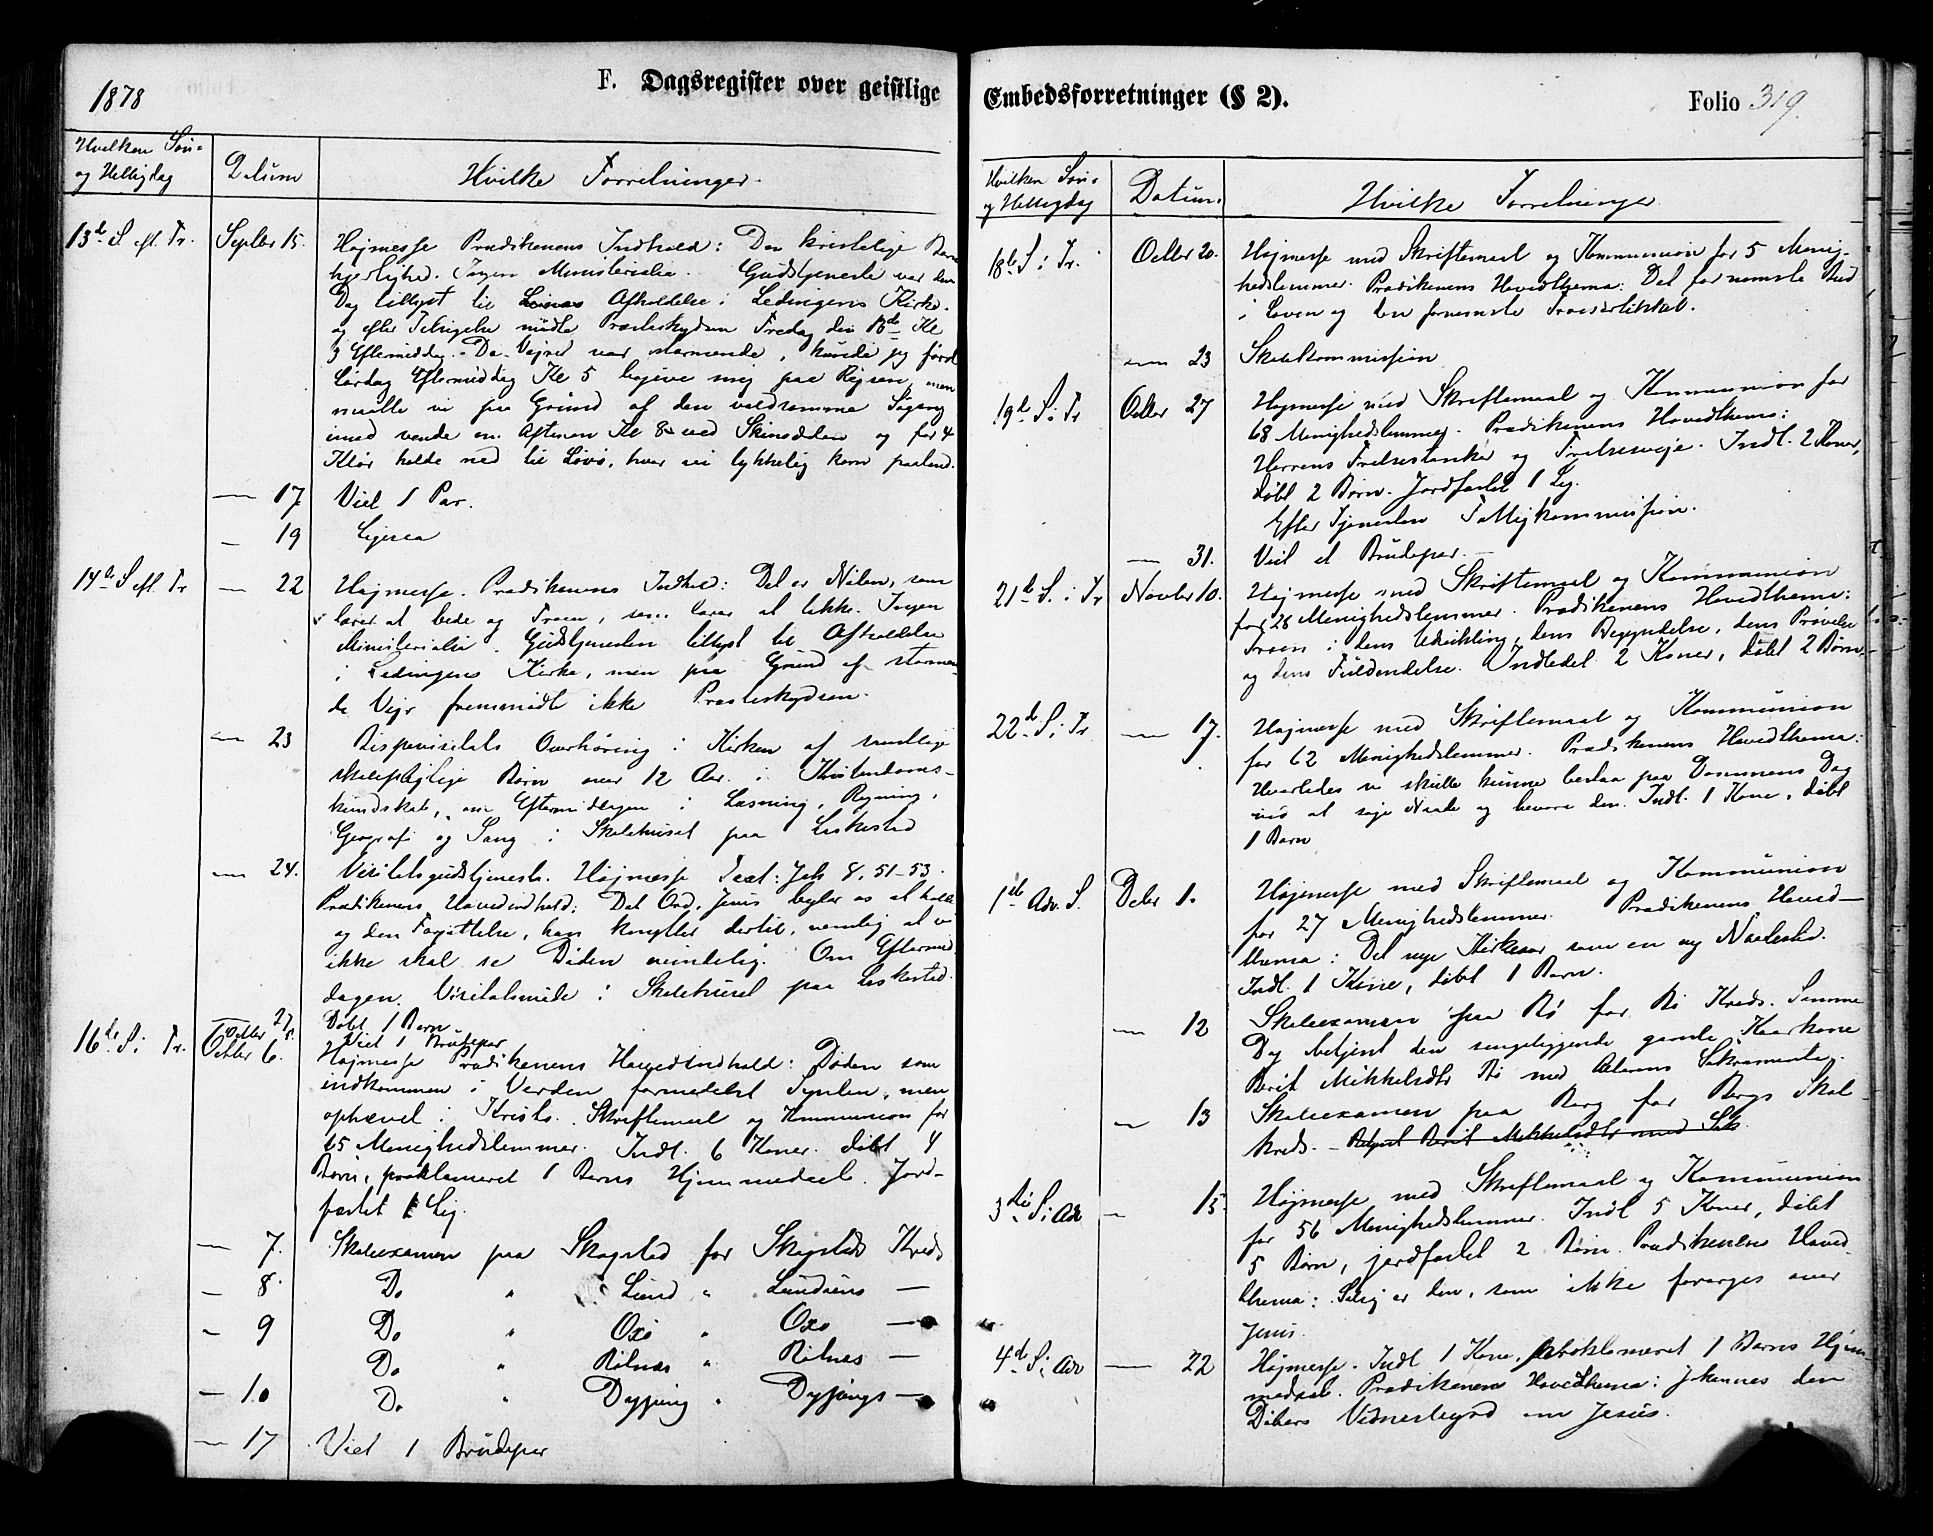 1878
F. Dagsregister over geistlige
Hvilken Søn-
og Helligdag
Datum
Hvilke Forretninger.
13de S. eft. Tr. Septbr 15. Højmesse Prædikenens Indhold: Den kristelige
kjerlighed. Ingen Ministerialia. Gudstjeneste var den
Dag tillyst til Afholdelse i Lødingens Kirke.
og efter mødte Præsteskydsen Fredag den 13de Kl
3 Eftermiddag. Da Vejret var stormende, kunde jeg først
Lørdag Eftermiddag Kl 5 begive mig paa Rejsen, men
maatte vi paa Grund af den voldsomme Søgang
imod vende om Aftenen Kl 8 ved og før 4
holde ned til Løvø, hvor vi lykkelig kom paaland.
— 17 Viet 1 Par.
— 19 Ligesaa
14de S eft. Tr — 22 Højmesse. Prædikenens Indhold: Det er Nøden, som
lærer at bede og Troen, som lærer at takke. Ingen
Ministerialia. Gudstjenesten tillyst til Afholdelse
i Lødingens Kirke, men paa Grund af stormen-
de Vejr fremmødte ikke Præsteskydsen.
— 23 Bispevisitats Overhøring i Kirken af samtlige
skolepligtige Børn over 12 Aar i Kristendoms-
kundskab, om Eftermiddagen i Læsning, Regning,
Geografi og Sang i Skolehuset paa Liskestad
— 24. Visitatsgudstjeneste. Højmesse Text: Joh 8, 51-53.
Prædikenens Hovedindhold: Det Ord, Jesus byder os at holde
og den Forjættelse, han knytter dertil, nemlig at vi
ikke skal se Døden evindelig. Om Eftermid-
dagen Visitatsmøde i Skolehuset paa Liskestad.
— 27 Døbt 1 Barn
Octbr Viet 1 Brudepar
16de S. i Tr. Octbr 6. Højmesse Prædikenens Hovedindhold: Døden som
indkommen i Verden formedelst Synden, men
ophævet i Kristo. Skriftemaal og Kommunion for
65 Menighedslemmer. Indl. 6 Koner. døbt 4
Børn, proklameret 1 Barns Hjemmedaab. Jord-
fæstet 1 Lig.
— 7. Skoleexamen paa Skogstad for Skogstads Kreds
— 8. Do " Lund " Lundens —
— 9 Do " Oxø " Oxø —
Do " Rølnæs " Rølnæs —
— 10 Do " Dypping " Dyppings —
— 17 Viet 1 Brudepar
Embedsforretninger (§ 2).
Folio 319.
Hvilken Søn-
og Helligdag
Datum.
Hvilke Forretninger
18de S. i Tr. Octbr 20. Højmesse med Skriftemaal og Kommunion for 5 Menig-
hedslemmer. Prædikenens Hovedthema: Det fornemste Bud
i Loven og den fornemste Troesartikkel.
— 23 Skolekommission
19de S. i Tr Octbr 27 Højmesse med Skriftemaal og Kommunion for
68 Menighedslemmer. Prædikenens Hovedthema:
Herrens Frelsestanke og Frelsesveje. Indl. 2 Koner,
døbt 2 Børn. Jordfæstet 1 Lig.
Efter Tjenesten Fattigkommission.
— 31. Viet et Brudepar.
21de S. i Tr Novbr 10. Højmesse med Skriftemaal og Kommunion
for 28 Menighedslemmer. Prædikenens Hovedthema:
Troen i dens Udvikling, dens Begyndelse, dens Prøvelse
og dens Fuldendelse. Indledet 2 Koner, døbt 2 Børn.
22de S. i Tr — 17. Højmesse med Skriftemaal og Kommunion
for 62 Menighedslemmer. Prædikenens Hovedthema:
Hvorledes vi skulle kunne bestaa paa Dommens Dag
ved at søge Naade og bevare den. Indl. 1 Kone, døbt
1 Barn
1ste Adv. S. Decbr 1. Højmesse med Skriftemaal og Kommunion
for 27 Menighedslemmer. Prædikenens Hoved-
thema: Det nye Kirkeaar som en ny
Indl. 1 Kone, døbt 1 Barn.
— 12 Skoleexamen paa Bø for Bø Kreds. Samme
Dag betjent den sengeliggende gamle Kaarkone
Berit Mikkelsdtr Bø med Alterens Sakramente.
— 13 Skoleexamen paa Berg for Bergs Skol-
kreds. – Betjent Berit Mikkelsdtr med Sak.
3die S. i Adv — 15. Højmesse med Skriftemaal og Kommunion
for 56 Menighedslemmer. Indl 5 Koner, døbt
5 Børn, jordfæstet 2 Børn. Prædikenens Hoved
thema: Salig er den, som ikke forarges over
Jesus.
4de S. i Adv — 22 Højmesse. Indl 1 Kone, proklameret 1 Barns Hjem-
medaab. Prædikenens Hovedthema: Johannes den
Døbers Vidnesbyrd om Jesus.